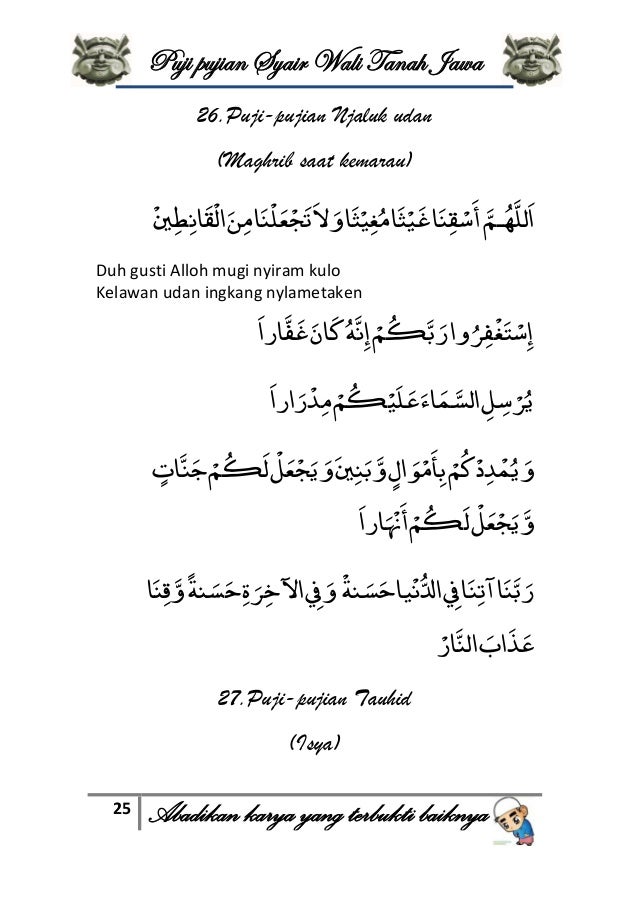 Puji pujian Syair Wali Tanah Jawa
26.Puji-pujian Njaluk udan
(Maghrib saat kemarau)
اَللَّهُـمَّ أَسْقِنَاغَيْثَامُغِيْثَاوَلاَتَجْعَلْنَامِنَ الْقَانِطِيْنْ
Duh gusti Alloh mugi nyiram kulo
Kelawan udan ingkang nylametaken
إِسْتَغْفِرُوارَبَّكُمْ إِنَّهُ كَانَ غَفَّاراَ
يُرْسِلِ السَّمَاءَعَلَيْكُمْ مِدْرَاراَ
وَيُمْدِدْكُمْ بِأَمْوَالٍ وَّبَنِيْنَ وَيَجْعَلْ لَكُمْ جَنَّاتٍ
وَّيَجْعَلْ لَكُمْ أَنْهَاراَ
رَبَّنَاآتِنَافِي الدُّنْياحَسَنةْ وَفِي الآخِرَةِحَسَنةً وَّقِنَا
عَذَابَ النَّارْ
27.Puji-pujian Tauhid
(Isya)
25 Abadikan karya yang terbukti baiknya